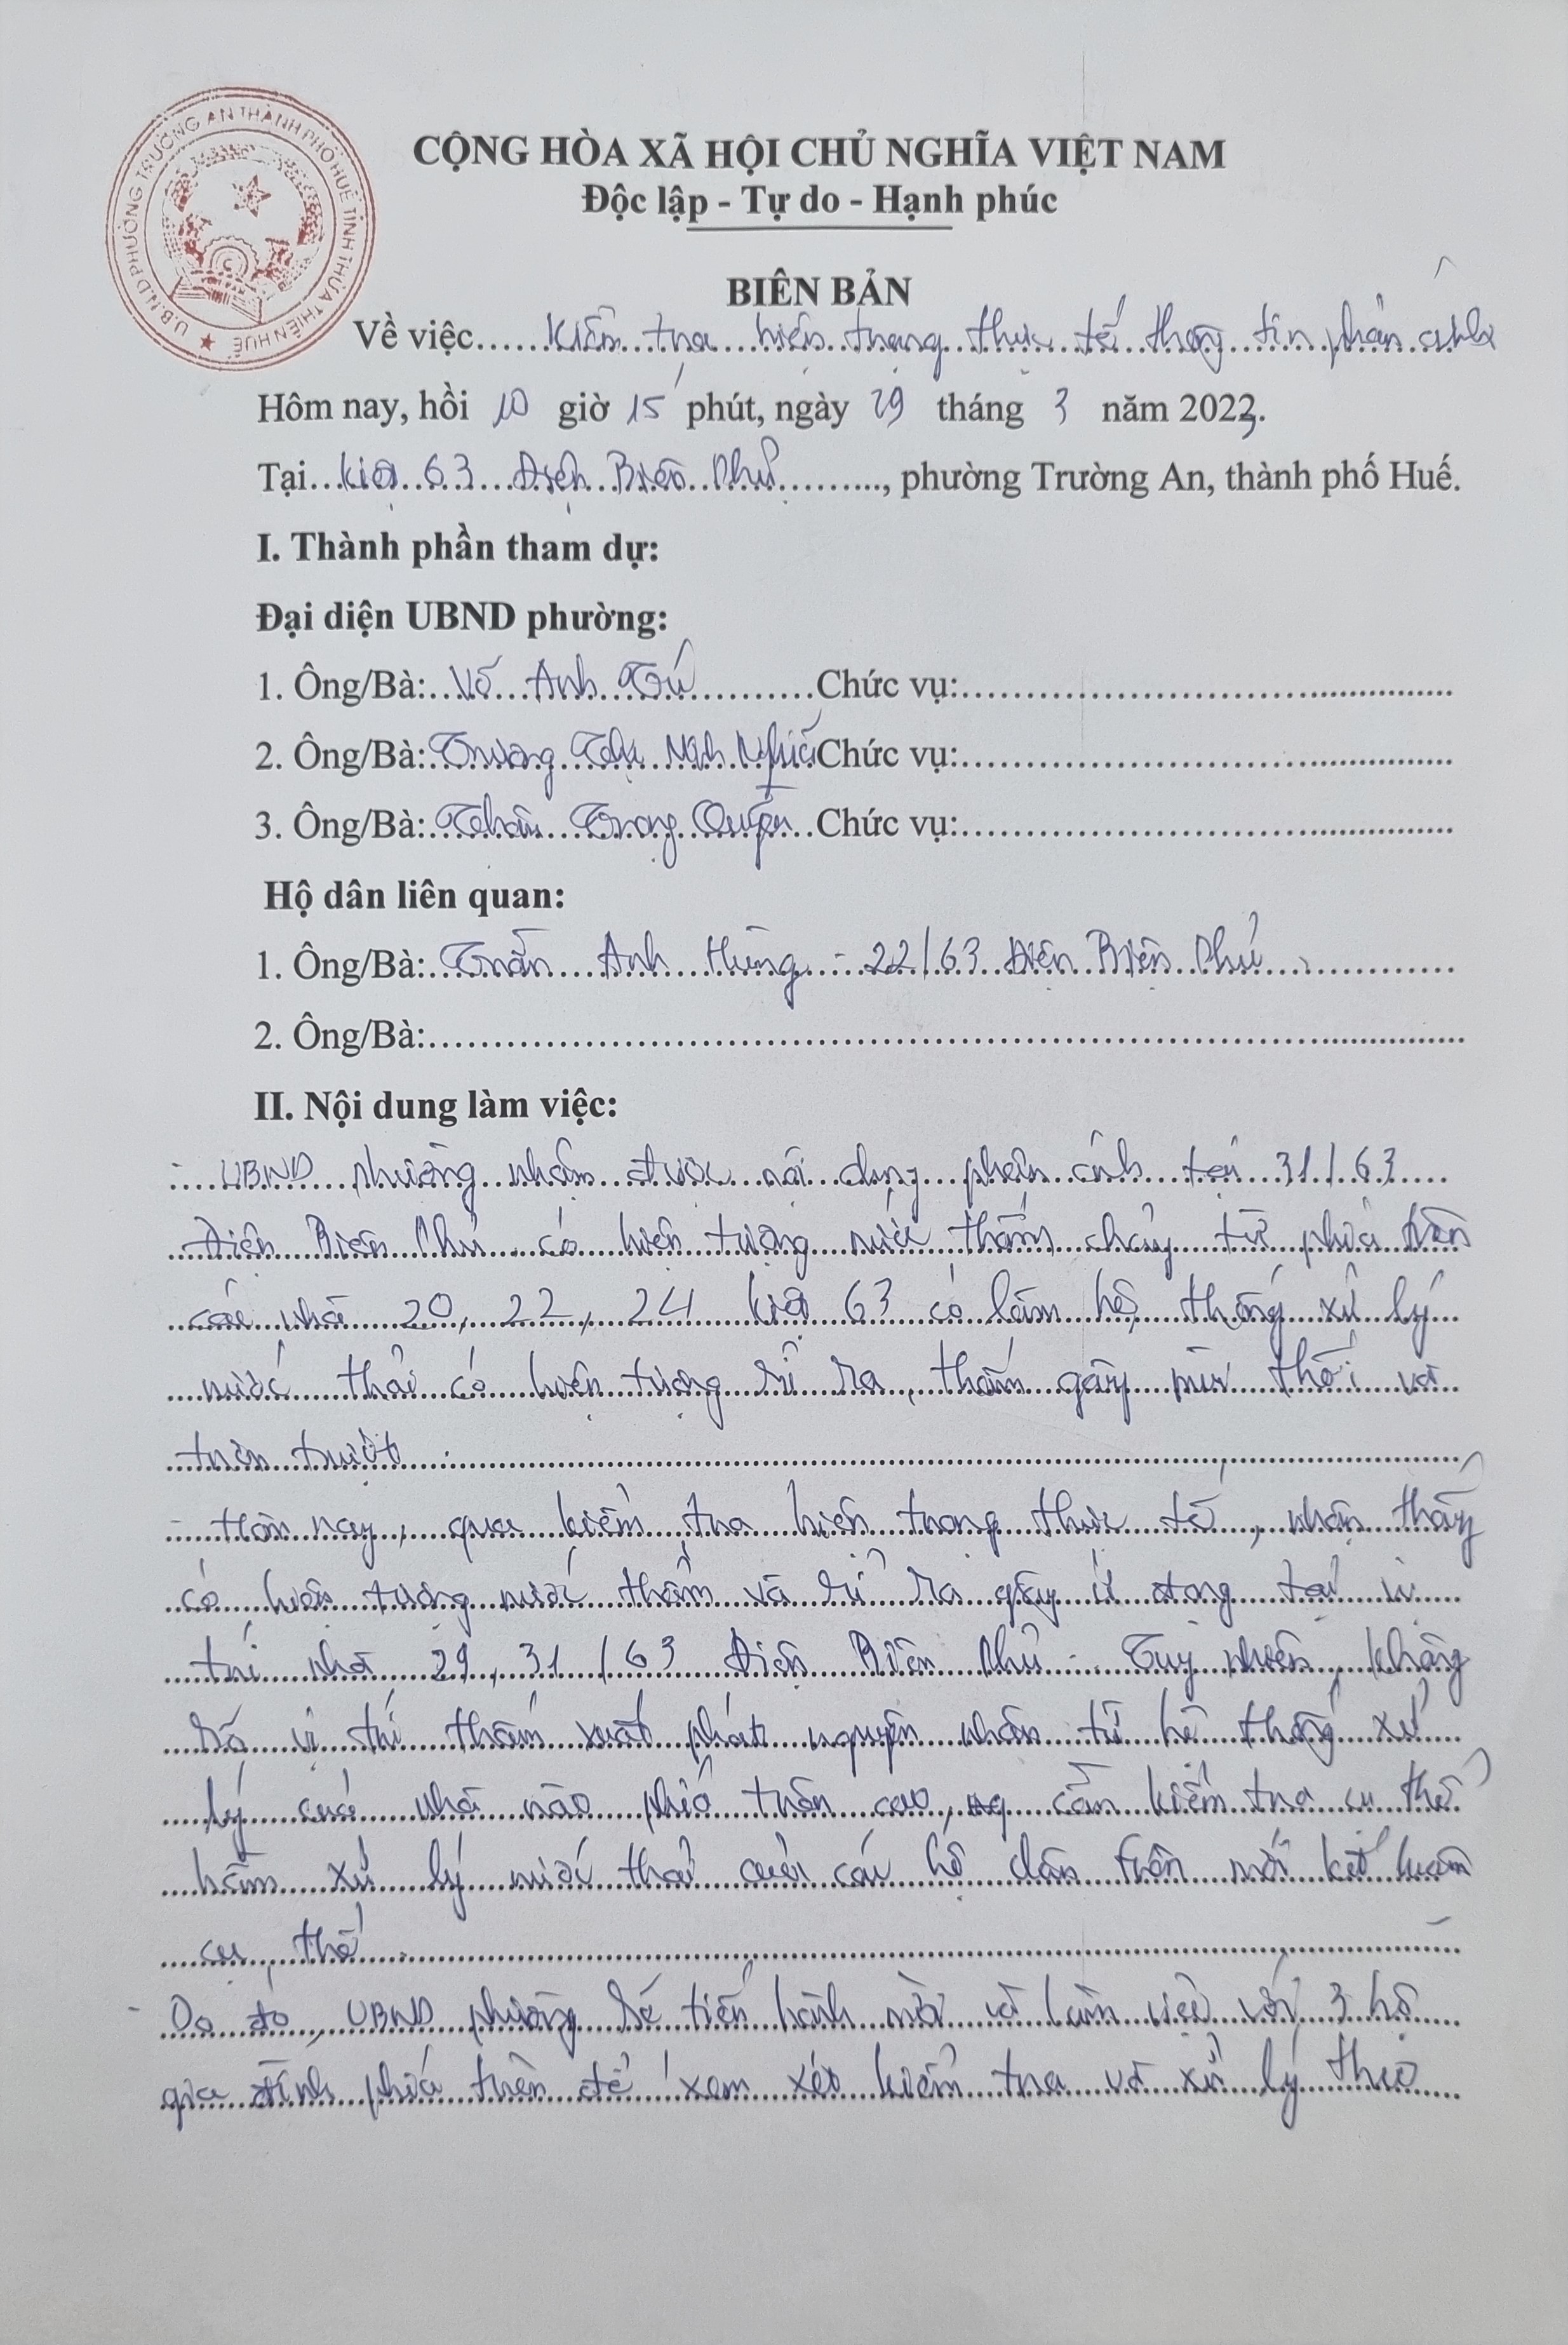 U.B.N.D PHƯỜNG TRƯỜNG AN THÀNH PHỐ HUẾ TỈNH THỪA THIÊN HUẾ
CỘNG HÒA XÃ HỘI CHỦ NGHĨA VIỆT NAM
Độc lập - Tự do - Hạnh phúc
BIÊN BẢN
Về việc......Kiểm tra hiện trạng thực tế thông tin phản ánh
Hôm nay, hồi 10 giờ 15 phút, ngày 29 tháng 3 năm 2023.
Tại...kiệt 63 Điện Biên Phủ..........., phường Trường An, thành phố Huế.
I. Thành phần tham dự:
Đại diện UBND phường:
1. Ông/Bà: Võ Anh Tú Chức vụ:
2. Ông/Bà: Trương Thị Minh Nghĩa Chức vụ:
3. Ông/Bà: Thân Trọng Quyền Chức vụ:
Hộ dân liên quan:
1. Ông/Bà: Trần Anh Hùng - 22/63 Điện Biên Phủ
2. Ông/Bà:
II. Nội dung làm việc:
- UBND phường nhận được nội dung phản ánh tại 31/63
Điện Biên Phủ có hiện tượng nước thấm chảy từ phía trên
các nhà 20, 22, 24 kiệt 63 có làm hệ thống xử lý
nước thải có hiện tượng rỉ ra, thấm gây mùi thối và
trơn trượt.
- Hôm nay, qua kiểm tra hiện trạng thực tế, nhận thấy
có hiện tượng nước thấm và rỉ ra gây ứ đọng tại vị
trí nhà 29, 31/63 Điện Biên Phủ. Tuy nhiên, không
rõ vị trí thấm xuất phát nguyên nhân từ hệ thống xử
lý của nhà nào phía trên cao, cần kiểm tra cụ thể
hầm xử lý nước thải của các hộ dân trên mới kết luận
cụ thể.
- Do đó, UBND phường sẽ tiến hành mời và làm việc với 3 hộ
gia đình phía trên để xem xét kiểm tra và xử lý theo